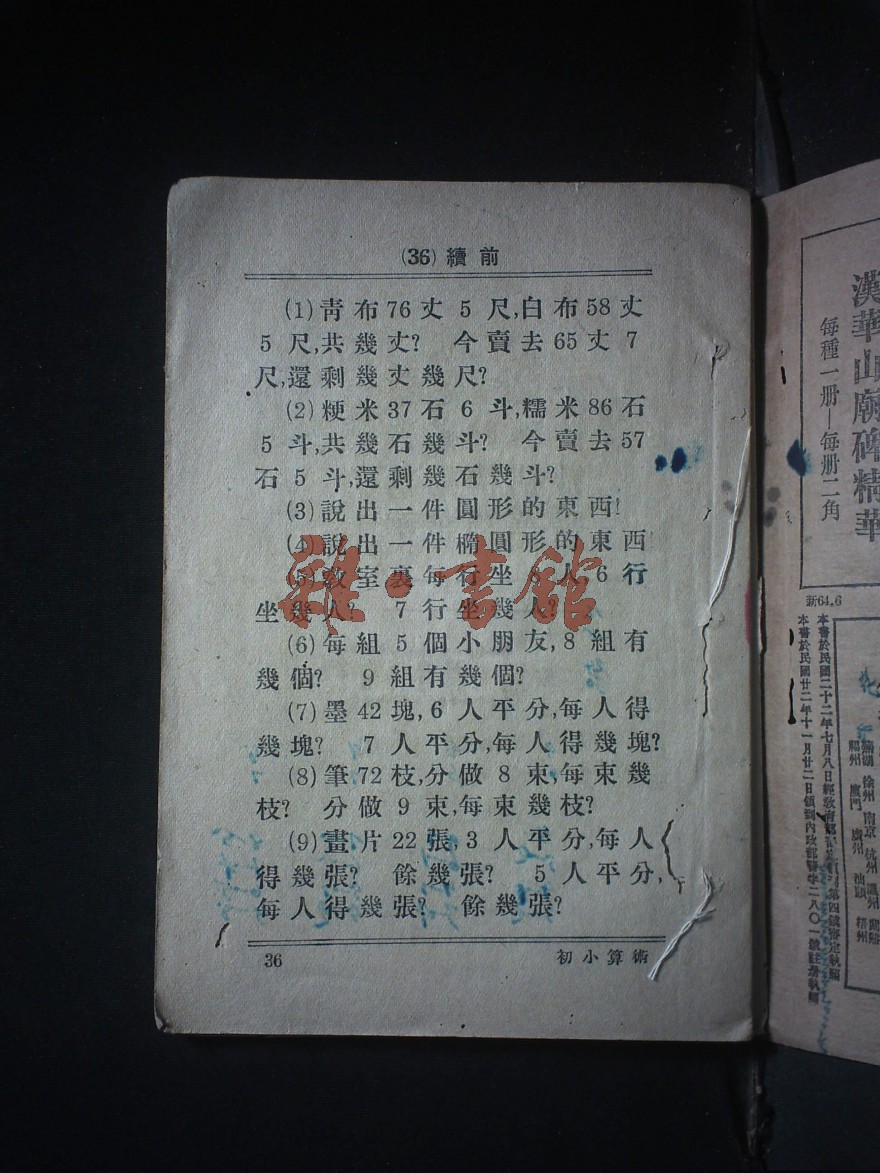 (36) 續前
(1) 靑布76丈 5 尺,白布58丈
5 尺,共幾丈? 今賣去65丈 7
尺,還剩幾丈幾尺?
(2) 粳米37石 6 斗,糯米86石
5 斗,共幾石幾斗? 今賣去57
石 5 斗,還剩幾石幾斗?
(3) 說出一件圓形的東西!
(4) 說出一件橢圓形的東西
(5) 敎室裏每行坐 8 人, 6 行
坐幾人? 7 行坐幾人?
(6) 每組 5 個小朋友, 8 組有
幾個? 9 組有幾個?
(7) 墨 42 塊, 6 人平分,每人得
幾塊? 7 人平分,每人得幾塊?
(8) 筆72枝,分做 8 束,每束幾
枝? 分做 9 束,每束幾枝?
(9) 畫片22張, 3 人平分,每人
得幾張? 餘幾張? 5 人平分,
每人得幾張? 餘幾張?
36
初小算術
雜·書館
漢華山廟碑精華
每種一册—每册二角
新64,6
本書於民國二十二年七月八日經敎育部
本書於民國廿二年十一月廿二日領到內政部警字二八〇一號註册執照
徐州 南京 杭州 溫州
福州 廈門 廣州 汕頭 梧州